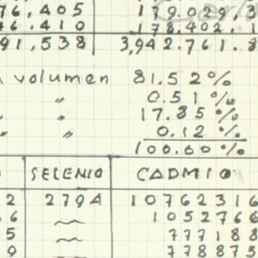 76,405 179.029,3
76.410 178.402,1
91,538 3,942.761.8
volumen 81.52%
" 0.51%
" 17.85%
" 0.12%
100.00%
SELENIO CADMIO
2 2794 10762316
6 ~ 1052766
5 ~ 777188
9 ~ 778875